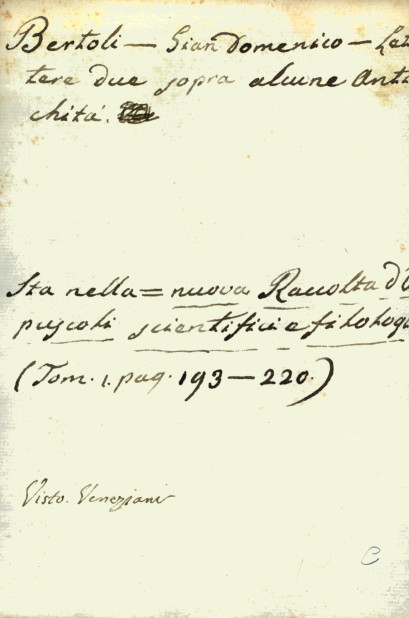 Bertoli — Gian Domenico — Let
tere due sopra alcune Anti
chità.
Sta nella = nuova Raccolta d'O
puscoli scientifici e filologi
(Tom. 1. pag. 193 — 220.)
Visto. Veneziani
C